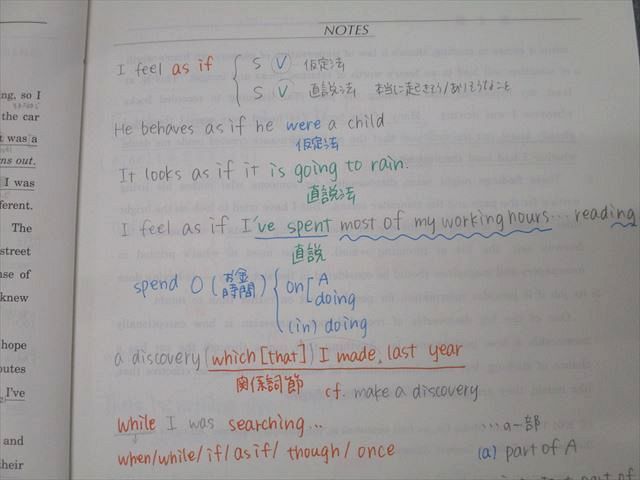 NOTES
I feel as if { S V 仮定法
S V 直説法 本当に起きそう/ありそうなこと
He behaves as if he were a child
仮定法
It looks as if it is going to rain.
直説法
I feel as if I've spent most of my working hours... reading
直説
spend O (お金 時間) { on [ A
doing
(in) doing
a discovery (which [that]) I made last year
関係詞節 cf. make a discovery
while I was searching... ...の一部
when/while/if/as if/ though/ once (a) part of A
ng, so I
the car
t was a
ns out.
I was
ferent.
The
street
se of
knew
hope
outes
I've
and
their